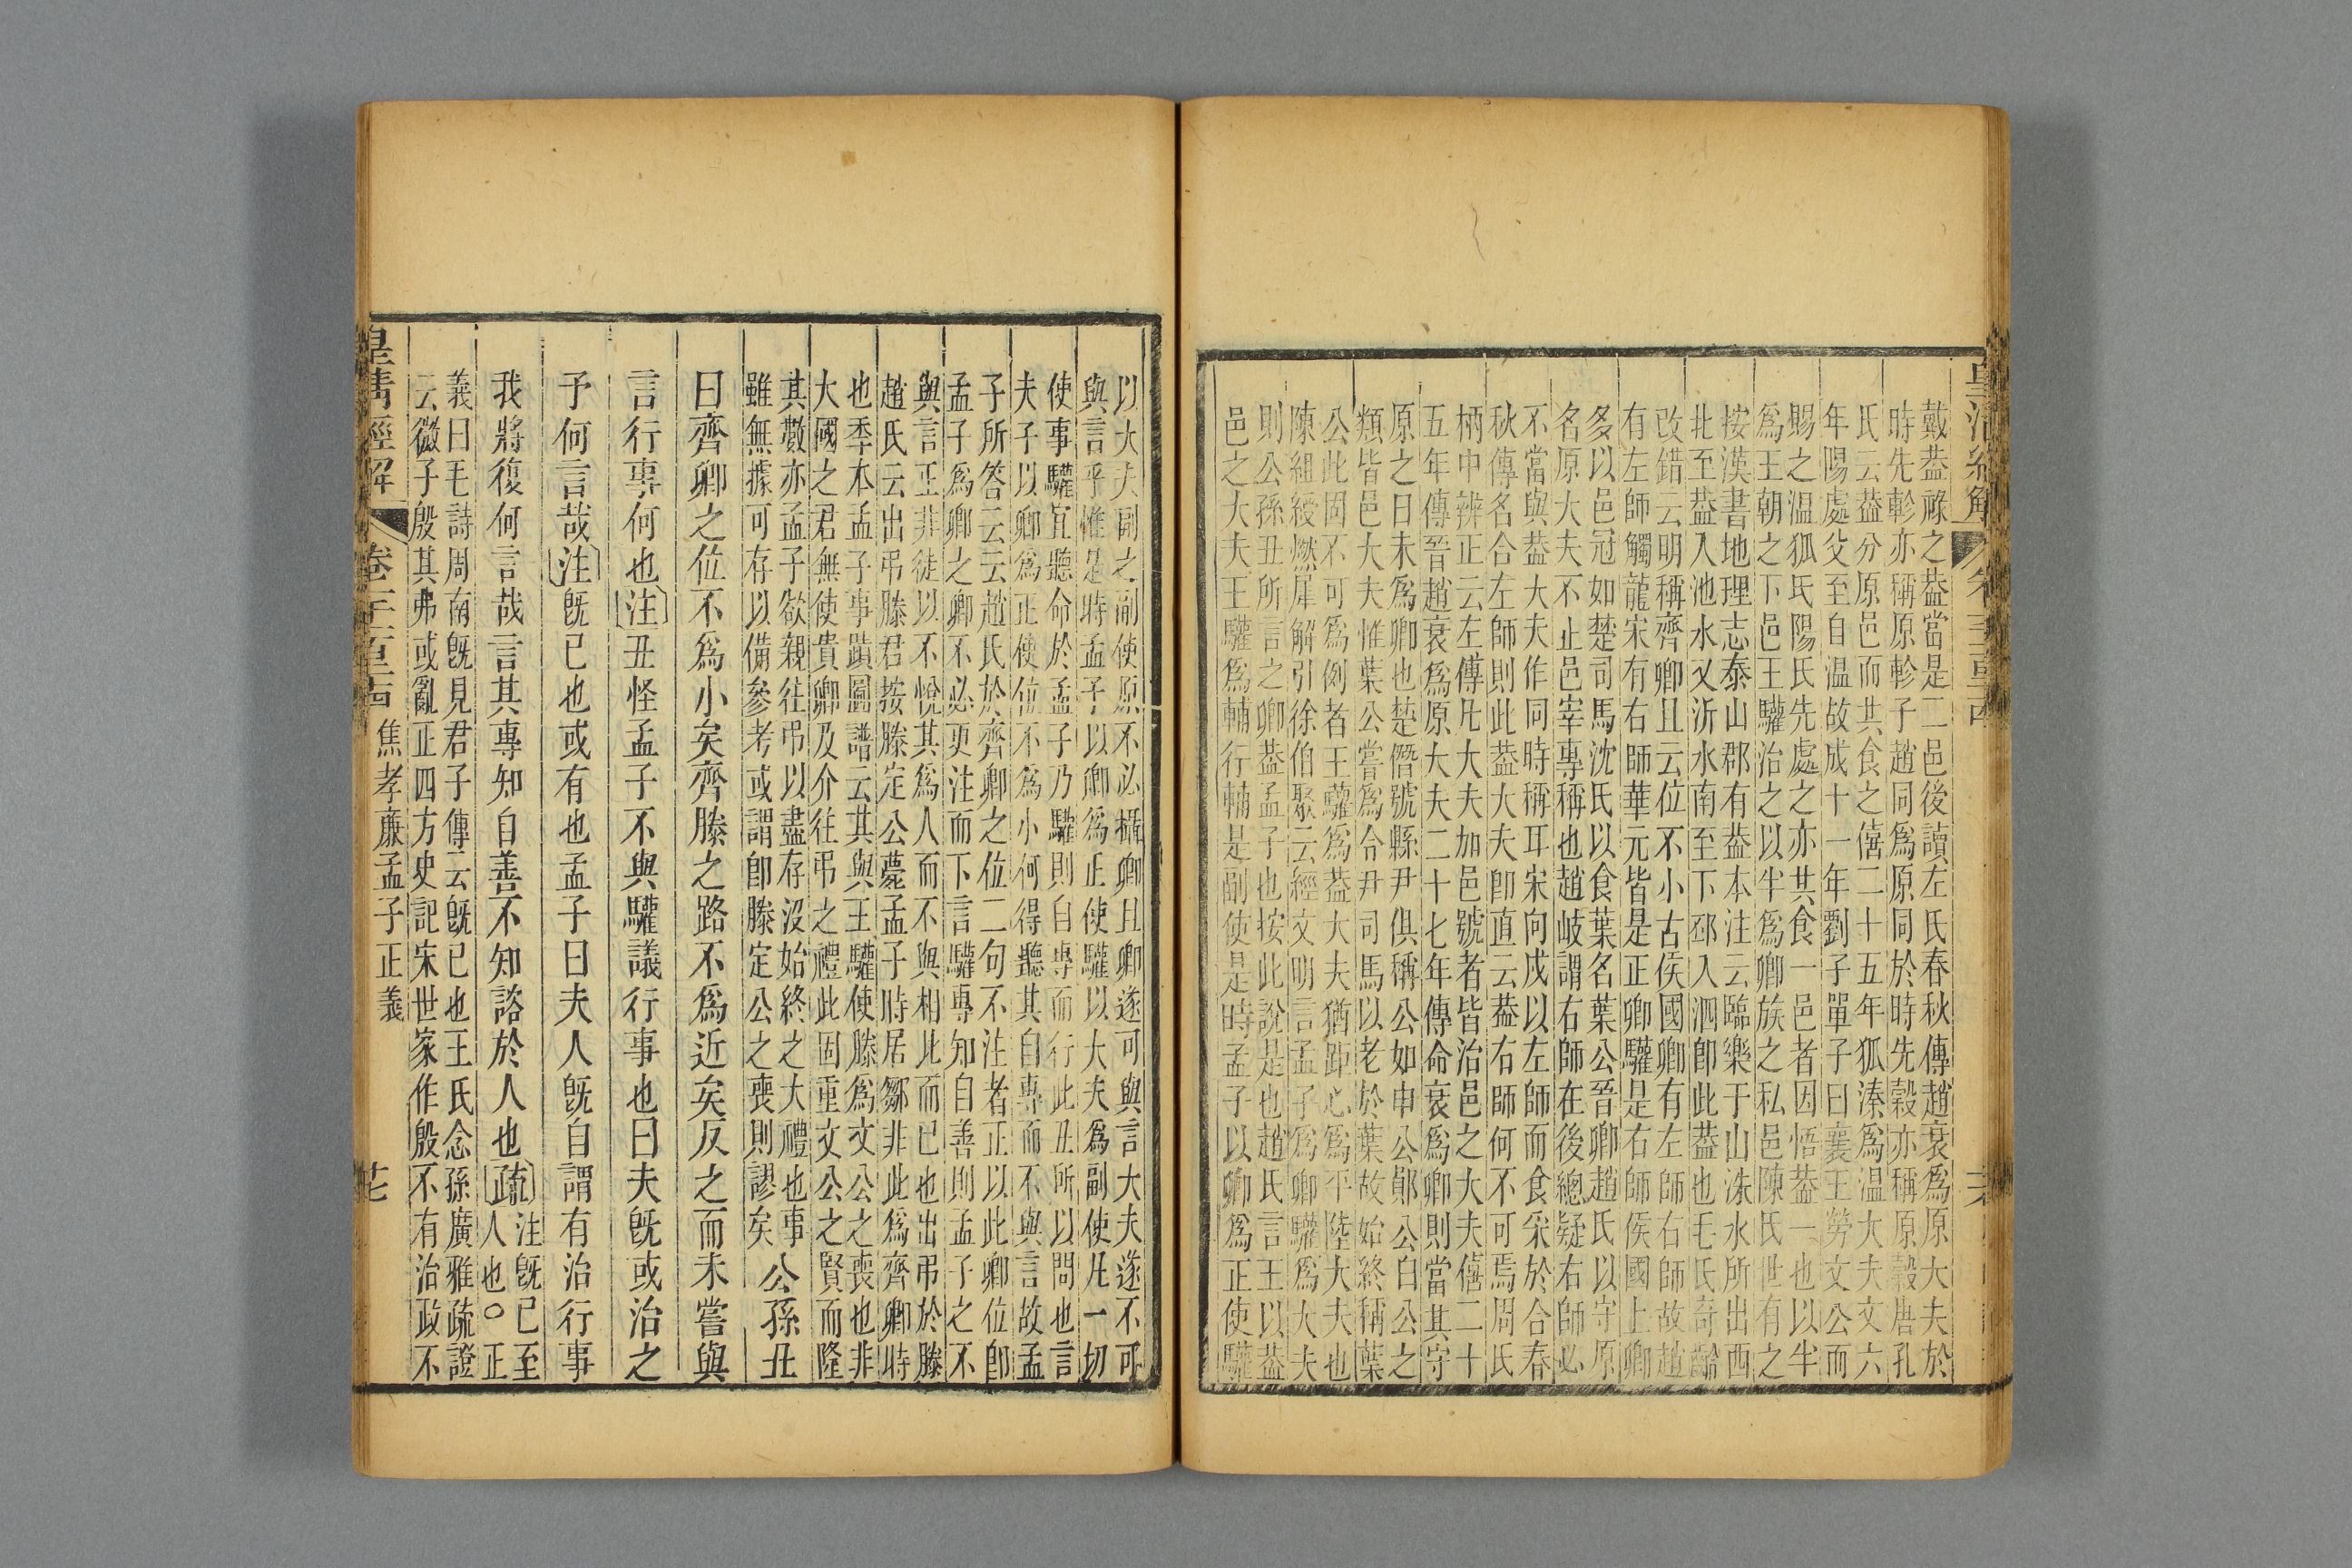 戴葢祿之葢當是二邑後讀左氏春秋傳趙衰爲原大夫於
時先軫亦稱原軫子趙同爲原同於時先穀亦稱原穀唐孔
氏云葢分原邑而其食之僖二十五年狐溱爲温大夫文六
年陽處父至自温故成十一年劉子單子曰襄王勞文公而
賜之温狐氏陽氏先處之亦其食一邑者因悟葢一也以半
爲王朝之下邑王驩治之以半爲卿族之私邑陳氏世有之
按漢書地理志泰山郡有葢本注云臨樂于山洙水所出西
北至葢入池水又沂水南至下邳入泗卽此葢也毛氏奇齡
改錯云明稱齊卿且云位不小古侯國卿有左師右師故趙
有左師觸龍宋有右師華元皆是正卿驩是右師侯國上卿
多以邑冠如楚司馬沈氏以食葉名葉公晉卿趙氏以守原
名原大夫不止邑宰專稱也趙岐謂右師在後總疑右師必
不當與葢大夫作同時稱耳宋向戌以左師而食采於合春
秋傳名合左師則此葢大夫卽直云葢右師何不可焉周氏
柄中辨正云左傳凡大夫加邑號者皆治邑之大夫僖二十
五年傳晉趙衰爲原大夫二十七年傳命衰爲卿則當其守
原之日未爲卿也楚僭號縣尹俱稱公如申公鄖公白公之
類皆邑大夫惟葉公嘗爲令尹司馬以老於葉故始終稱葉
公此固不可爲例者王驩爲葢大夫猶距心爲平陸大夫也
陳組綬燃犀解引徐伯聚云經文明言孟子爲卿驩爲大夫
則公孫丑所言之卿葢孟子也按此說是也趙氏言王以葢
邑之大夫王驩爲輔行輔是副使是時孟子以卿爲正使驩
以大夫副之副使原不必攝卿且卿遂可與言大夫遂不可
與言乎惟是時孟子以卿爲正使驩以大夫爲副使凡一切
使事驩宜聽命於孟子乃驩則自專而行此丑所以問也言
夫子以卿爲正使位不爲小何得聽其自專而不與言故孟
子所答云云趙氏於齊卿之位二句不注者正以此卿位卽
孟子爲卿之卿不必更注而下言驩專知自善則孟子之不
與言正非徒以不悅其爲人而不與相比而已也出弔於滕
趙氏云出弔滕君按滕定公薨孟子時居鄒非此爲齊卿時
也季本孟子事蹟圖譜云其與王驩使滕爲文公之喪也非
大國之君無使貴卿及介往弔之禮此固重文公之賢而隆
其數亦孟子欲親往弔以盡存沒始終之大禮也事
雖無據可存以備參考或謂卽滕定公之喪則謬矣
公孫丑
曰齊卿之位不爲小矣齊滕之路不爲近矣反之而未嘗與
言行事何也注丑怪孟子不與驩議行事也曰夫旣或治之
予何言哉注旣已也或有也孟子曰夫人旣自謂有治行事
我將復何言哉言其專知自善不知諮於人也疏
注旣已至
人也○正
義曰毛詩周南旣見君子傳云旣已也王氏念孫廣雅疏證
云微子殷其弗或亂正四方史記宋世家作殷不有治政不
皇清經解 卷 焦孝廉孟子正義